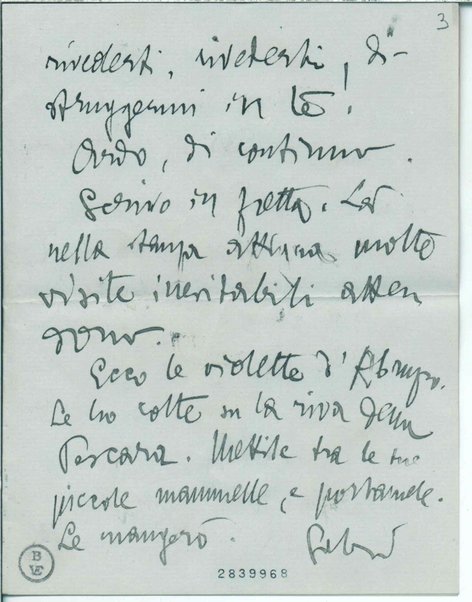 3
rivederti, rivederti, di-
struggermi in te!
Ardo, di continuo.
Scrivo in fretta. Là
nella stanza attigua molte
visite inevitabili atten
dono.
Ecco le violette d'Abruzzo.
Le ho colte su la riva della
Pescara. Mettile tra le tue
piccole mammelle, e portamele.
Le mangerò.
Gabri
B
VE
2839968